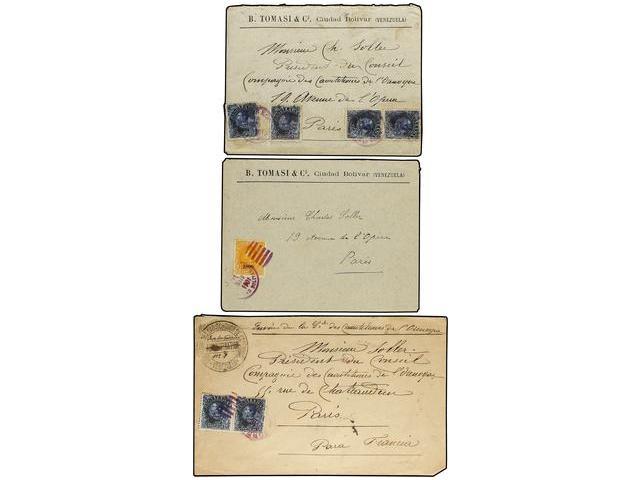 B. TOMASI & Cª. Ciudad Bolivar (VENEZUELA)
Monsieur Ch. Soller
Président du Conseil
Compagnie des Caoutchoucs de l'Ouenoque
19. Avenue de l'Opera
Paris
B. TOMASI & Cª. Ciudad Bolivar (VENEZUELA)
Monsieur Charles Soller
19 Avenue de l'Opera
Paris
de la des Caoutchoucs de l'
Monsieur Soller.
Président du Conseil
Compagnie des Caoutchoucs de l'
rue de Chateaudun
Paris
Para Francia